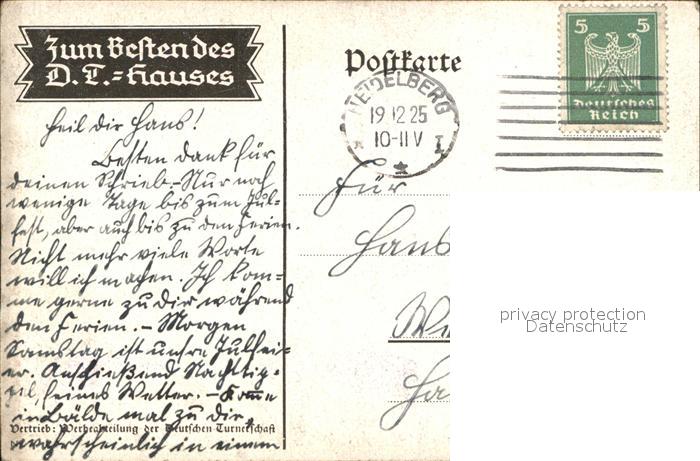 Zum Besten des
D. T.=Hauses
Postkarte
5 5
Deutsches
Reich
HEIDELBERG
19.12.25
10-11 V
Heil dir Hans!
Besten Dank für
deinen Schrieb.- Nur noch
wenige Tage bis zum Jul-
fest, aber auch bis zu den Ferien.
Nicht mehr viele Worte
will ich machen. Ich kom-
me gerne zu dir während
den Ferien. - Morgen
Samstag ist unsre Julfei-
er. Anschießend Nachttig-
feines Wetter. - Komme
in Bälde mal zu dir,
Vertrieb: Werbeabteilung der Deutschen Turnerschaft
wahrscheinlich in einem
Für
Hans
privacy protection
Datenschutz